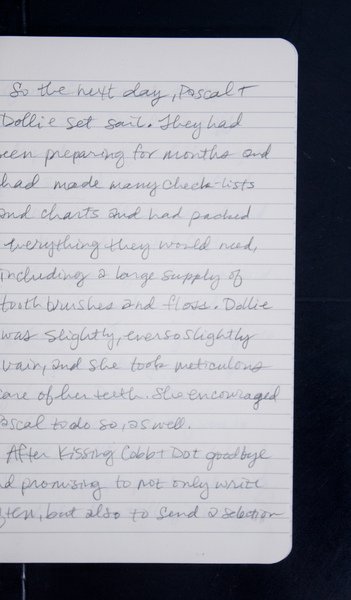 So the next day, Pascal +
Dollie set sail. They had
een preparing for months and
had made many check-lists
and charts and had packed
everything they would need,
including a large supply of
toothbrushes and floss. Dollie
was slightly, ever so slightly
vain, and she took meticulous
care of her teeth. She encouraged
Pascal to do so, as well.
After kissing Cobb + Dot goodbye
nd promising to not only write
ften, but also to send a selection